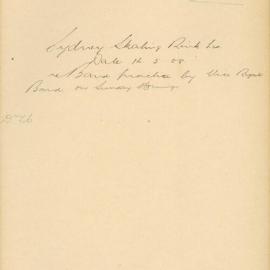 Sydney Skating Rink Co
Date 12 5 08
re Band practice by Vice Regal
Band on Sunday